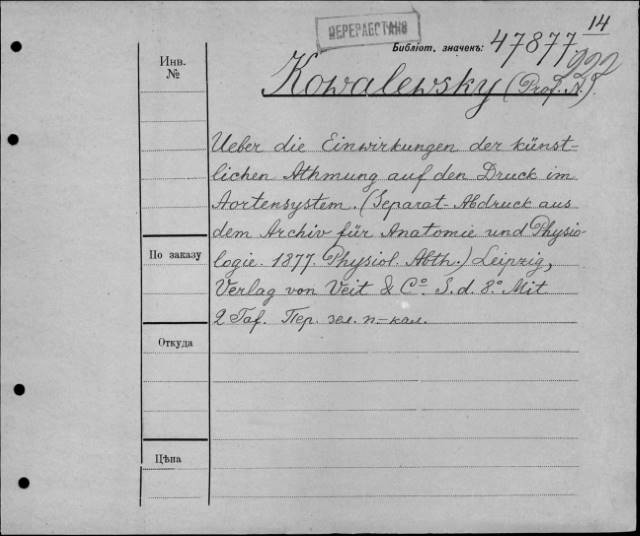 ПЕРЕРАБОТАНО
14
Библіот. значекъ: 47877.
222
Инв.
№
Kowalewsky (Prof. N.).
Ueber die Einwirkungen der künst-
lichen Athmung auf den Druck im
Aortensystem. (Separat-Abdruck aus
dem Archiv für Anatomie und Physio-
По заказу
logie. 1877. Physiol. Abth.) Leipzig,
Verlag von Veit & Co. S. d. 8.° Mit
2 Taf. Пер. зел. п-кал.
Откуда
Цѣна